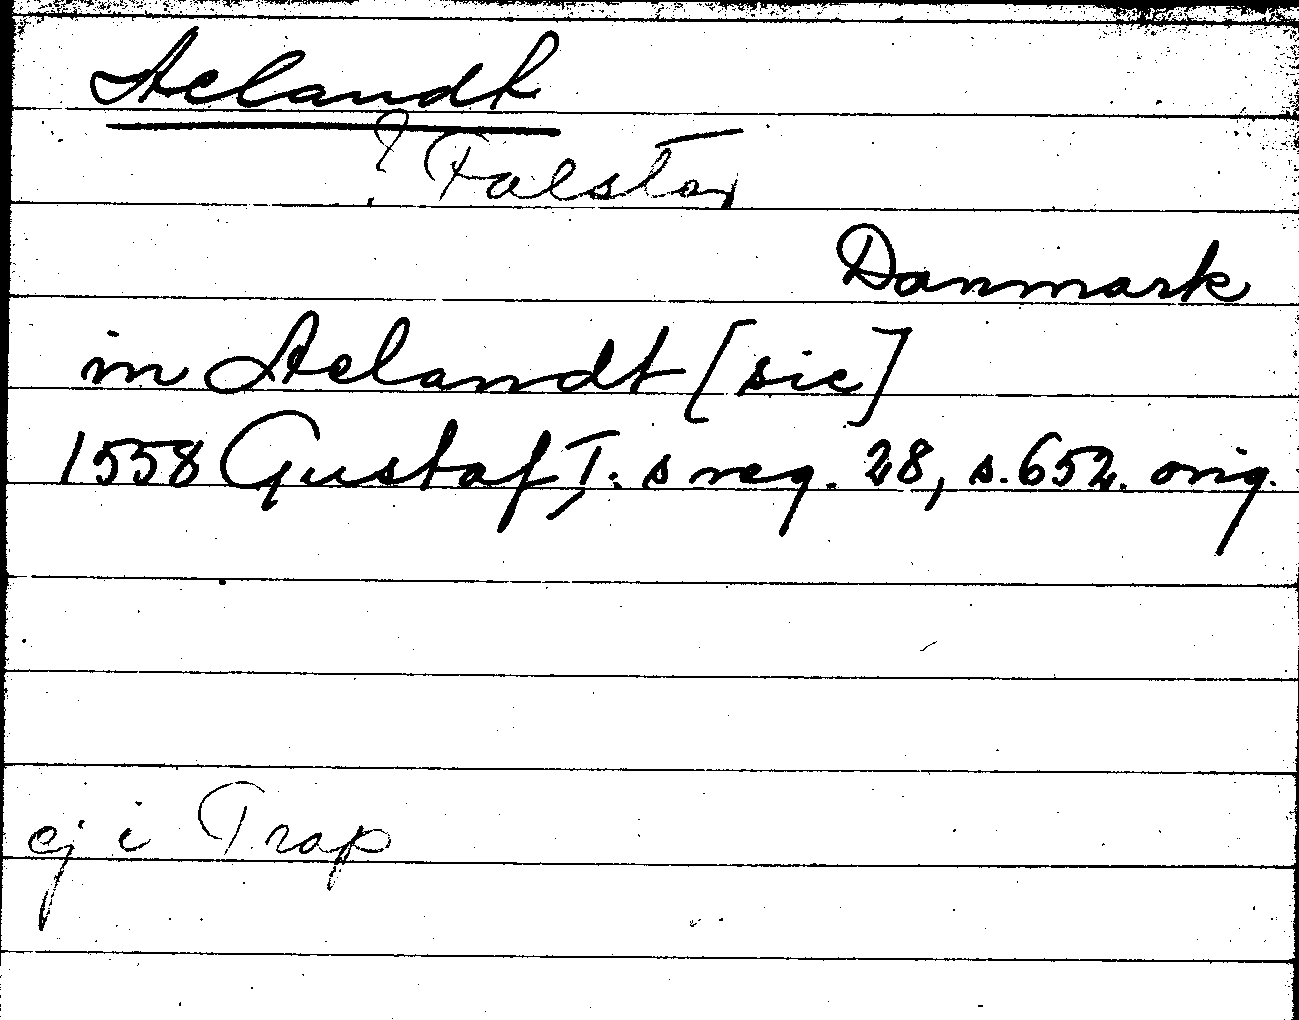 Aelandt
? Falster
Danmark
in Aelandt [sic]
1558 Gustaf I:s reg. 28, s. 652. orig.
ej i Trap